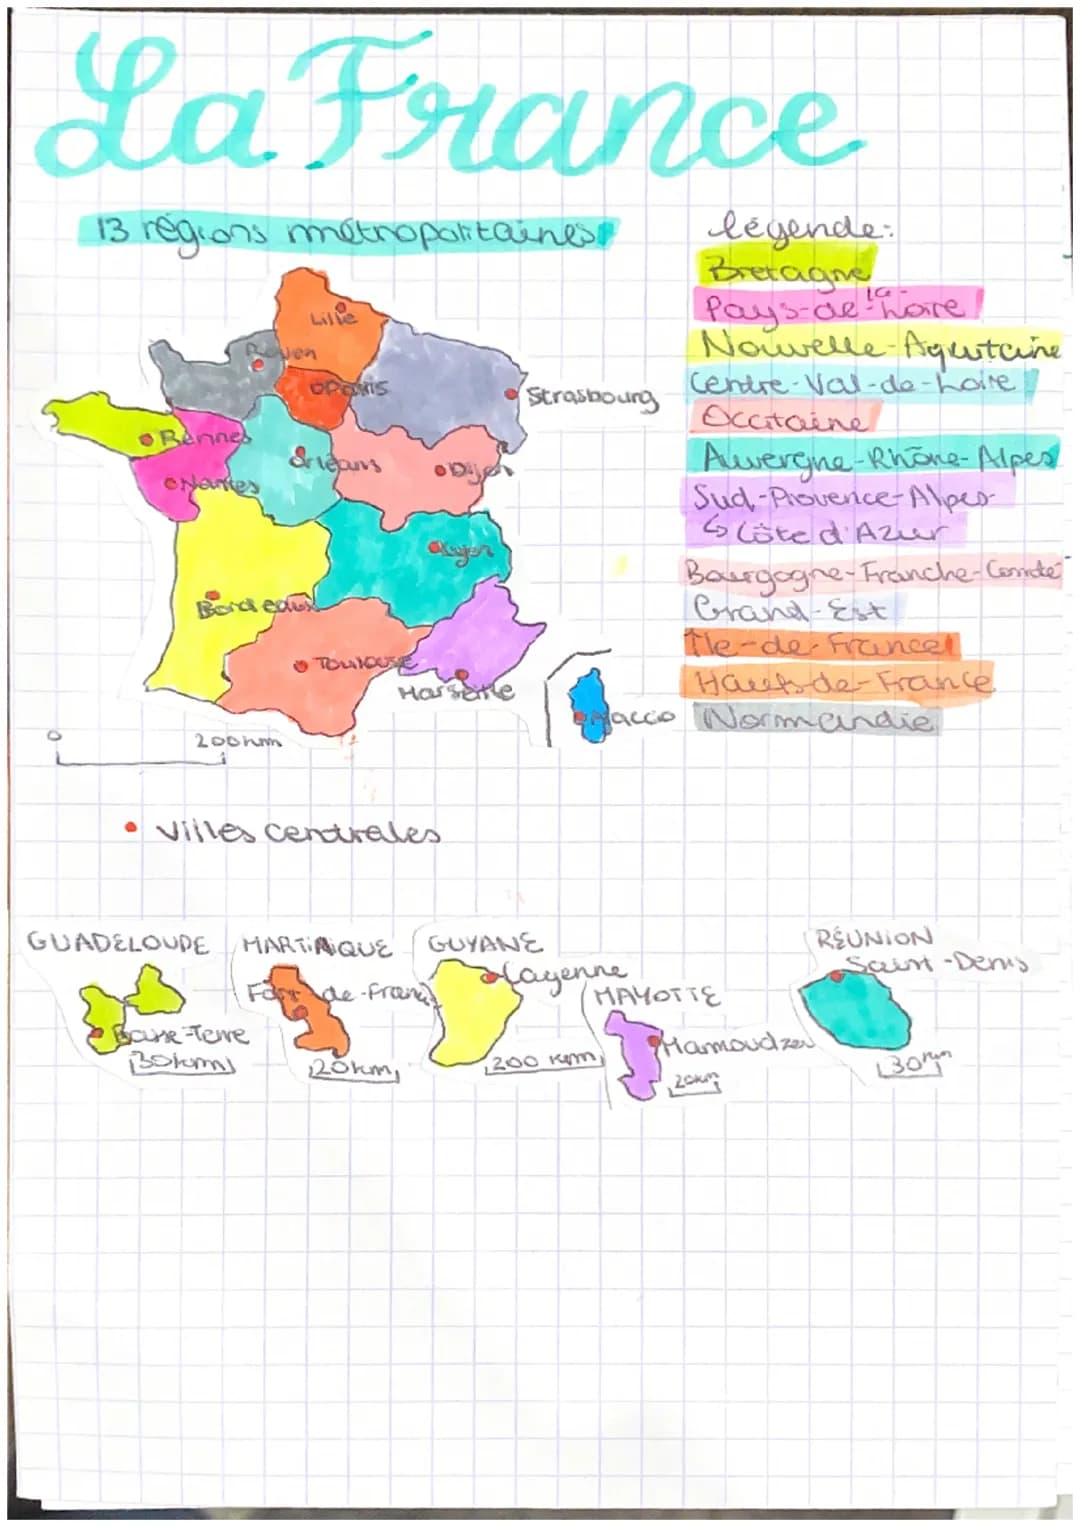 La France
13 régions métropolitaines
légende:
Bretagne
Pays-de-la-Loire
Nouvelle-Aquitaine
Centre-Val-de-Loire
Occitaine
Auvergne-Rhône-Alpes
Sud-Provence-Alpes-
↳ Côte d'Azur
Bourgogne-Franche-Comté
Grand-Est
Île-de-France
Hauts-de-France
Normandie
Lille
Rouen
Paris
Strasbourg
Rennes
Orléans
Dijon
Nantes
Lyon
Bordeaux
Toulouse
Marseille
Ajaccio
0
200km
• Villes centrales
GUADELOUPE
Basse-Terre
30km
MARTINIQUE
Fort-de-France
20km
GUYANE
Cayenne
200 km
MAYOTTE
Mamoudzou
20km
RÉUNION
Saint-Denis
30km